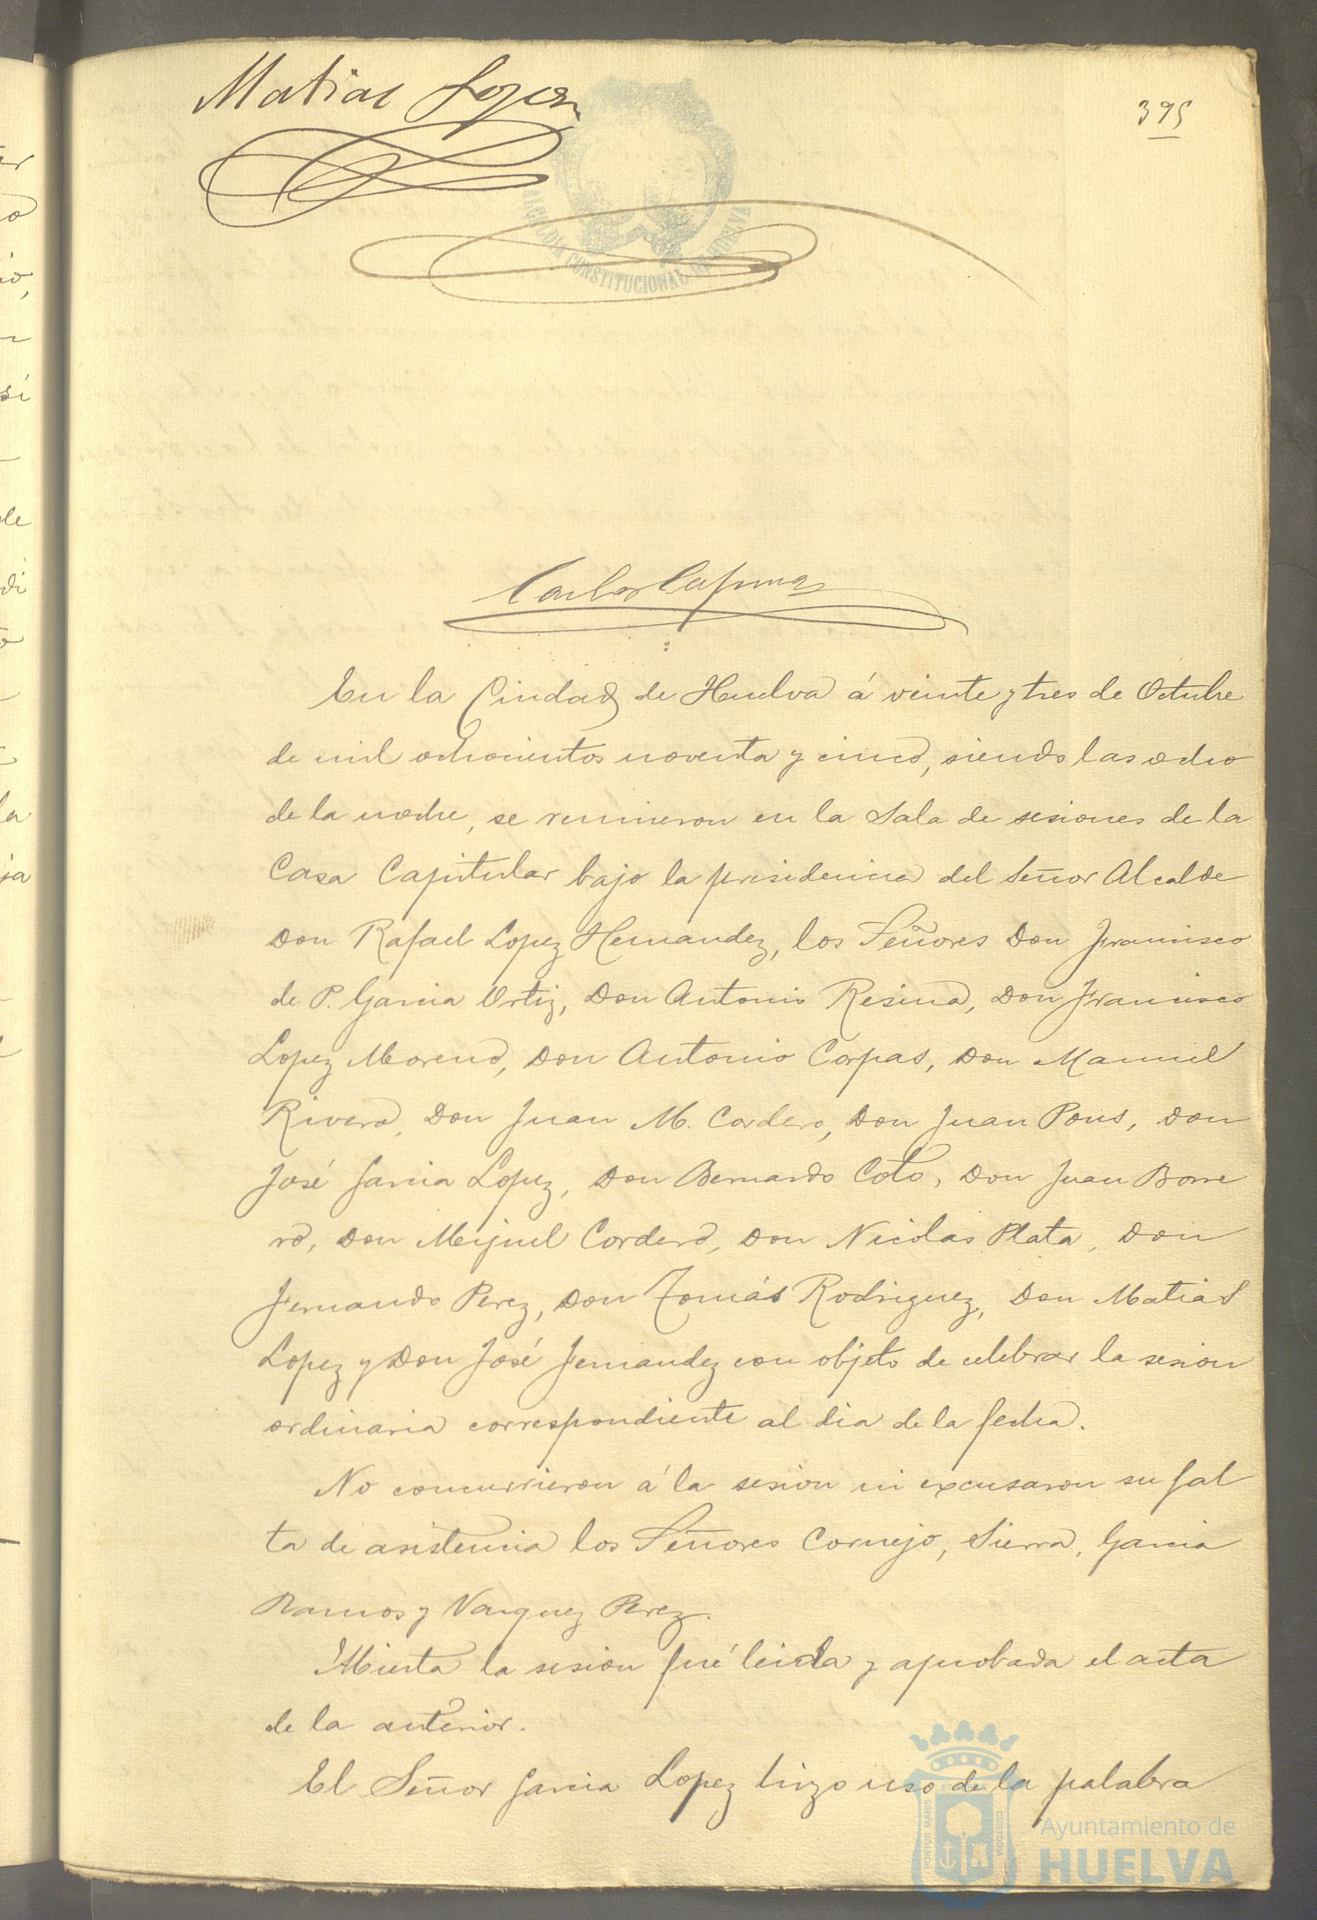 Matias Lopez
395
ALCALDÍA CONSTITUCIONAL DE HUELVA
Carlos
En la Ciudad de Huelva á veinte y tres de Octubre
de mil ochocientos noventa y cinco, siendo las ocho
de la noche, se reunieron en la Sala de sesiones de la
Casa Capitular bajo la presidencia del Señor Alcalde
Don Rafael Lopez Hernandez, los Señores Don Francisco
de P. Garcia Ortiz, Don Antonio Resina, Don Francisco
Lopez Moreno, Don Antonio Corpas, Don Manuel
Rivera, Don Juan M. Cordero, Don Juan Pons, Don
José Garcia Lopez, Don Bernardo Coto, Don Juan Borre
ro, Don Miguel Cordero, Don Nicolas Plata, Don
Fernando Perez, Don Tomás Rodriguez, Don Matias
Lopez y Don José Fernandez con objeto de celebrar la sesion
ordinaria correspondiente al dia de la fecha.
No concurrieron á la sesion ni excusaron su fal
ta de asistencia los Señores Cornejo, Sierra, Garcia
Ramos y Vazquez Perez.
Abierta la sesion fué leida y aprobada el acta
de la anterior.
El Señor Garcia Lopez hizo uso de la palabra
PORTUS MARIS CUSTODIA
Ayuntamiento de
HUELVA